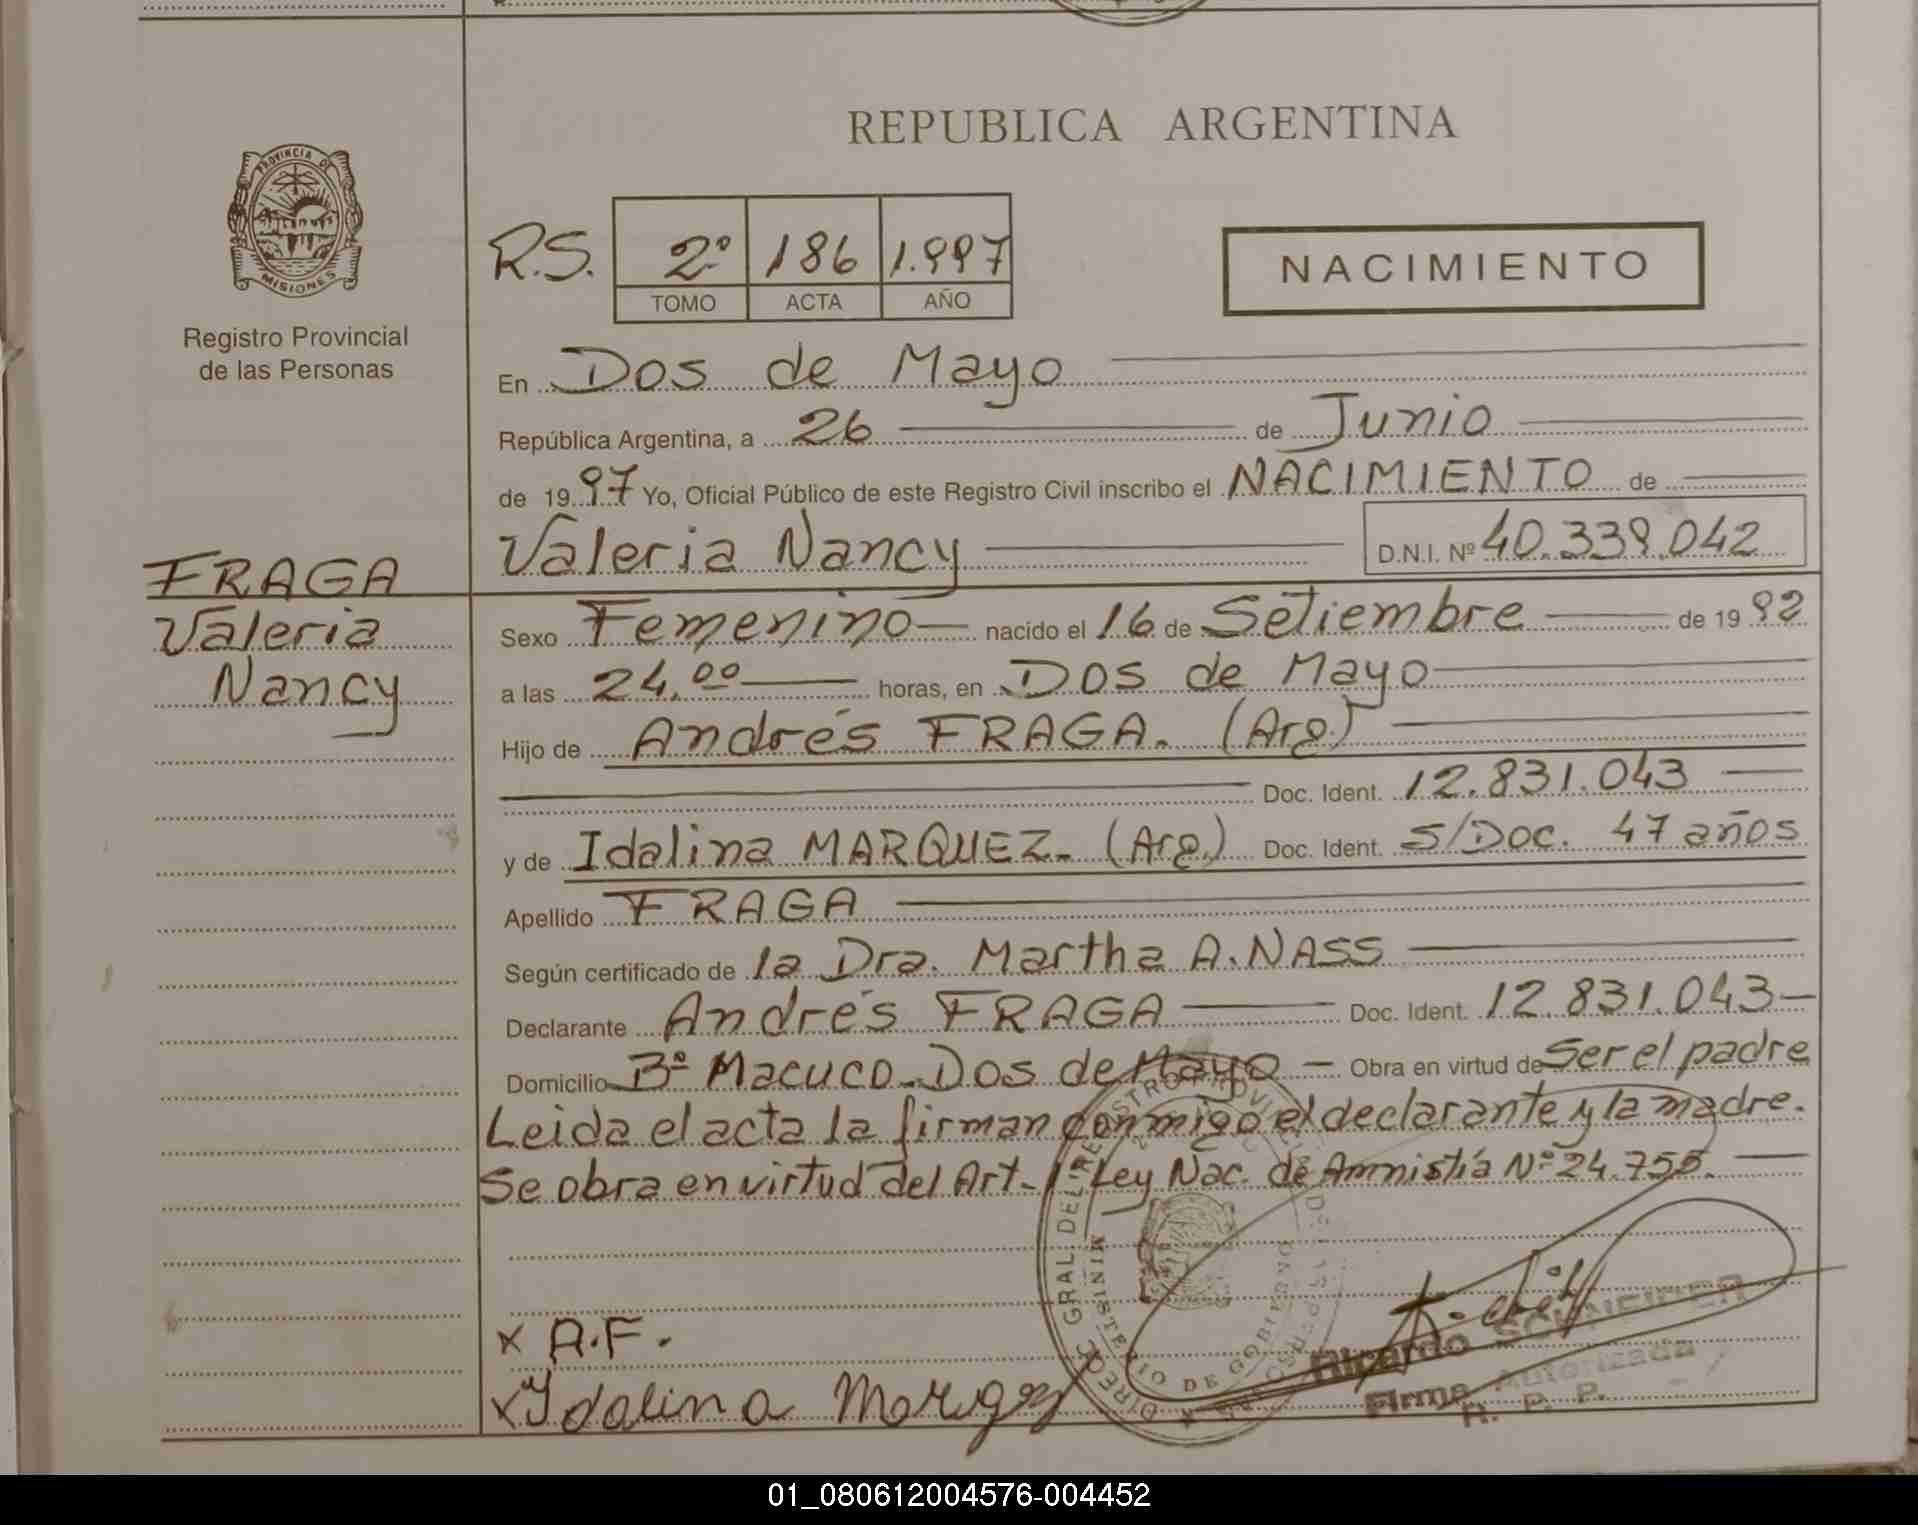 REPUBLICA ARGENTINA
PROVINCIA DE
MISIONES
Registro Provincial
de las Personas
R.S. 2º 186 1.997
TOMO ACTA AÑO
NACIMIENTO
En Dos de Mayo
República Argentina, a 26 de Junio
de 1997 Yo, Oficial Público de este Registro Civil inscribo el NACIMIENTO de
Valeria Nancy D.N.I. Nº 40.339.042
FRAGA
Valeria
Nancy
Sexo Femenino nacido el 16 de Setiembre de 1992
a las 24.00 horas, en Dos de Mayo
Hijo de Andrés FRAGA. (Arg)
Doc. Ident. 12.831.043
y de Idalina MARQUEZ. (Arg.) Doc. Ident. S/Doc. 47 años
Apellido FRAGA
Según certificado de la Dra. Martha A. NASS
Declarante Andrés FRAGA Doc. Ident. 12.831.043
Domicilio Bº Macuco. Dos de Mayo Obra en virtud de Ser el padre
Leida el acta la firman conmigo el declarante y la madre.
Se obra en virtud del Art. 1º Ley Nac. de Amnistía Nº 24.755.
x A.F.
x Ydalina
DIREC. GRAL. DEL REGISTRO PROVINCIAL DE LAS PERSONAS
MINISTERIO DE GOBIERNO
Ricardo SCHNEIDER
Firma Autorizada
R. P. P.
01_080612004576-004452